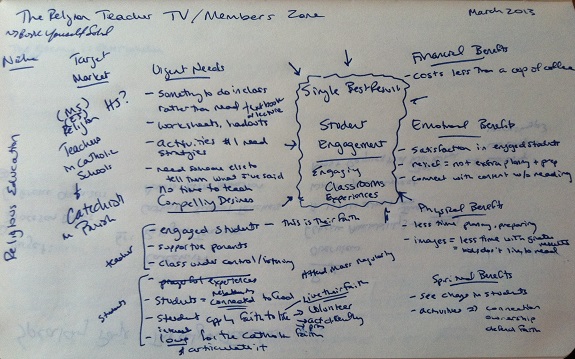 The Religion Teacher TV/Members Zone
March 2013
→ Book Yourself Solid
Niche
Religious Education
Target
Market
(MS)
(ES)
HS?
Religion
Teachers
in Catholic
Schools
&
Catechists
in Parish
Urgent Needs
- Something to do in class
rather than read textbook
or lecture
- worksheets, handouts
- activities
strategies
- need someone else to
tell them what I've said
- no time to teach
Compelling Desires
teacher
- engaged students - this is their faith
- supportive parents
- class under control / listening
- prayerful experiences
Attend Mass regularly
students
- Students = relationship connected to God
- Student apply faith to life
Live their faith
→ volunteer
→ act differently
→ pray
- love for the Catholic Faith
& articulate it
Single Best Result
Student
Engagement
Engaging
Classroom
Experiences
Financial Benefits
- costs less than a cup of coffee
Emotional Benefits
- satisfaction in engaged students
- relief = not extra planning + prep
- connect with content w/o reading
Physical Benefits
- less time planning, preparing
- images = less time with greater results
= kids don't like to read
Spiritual Benefits
- see change in students
- activities → connection
ownership
defend faith